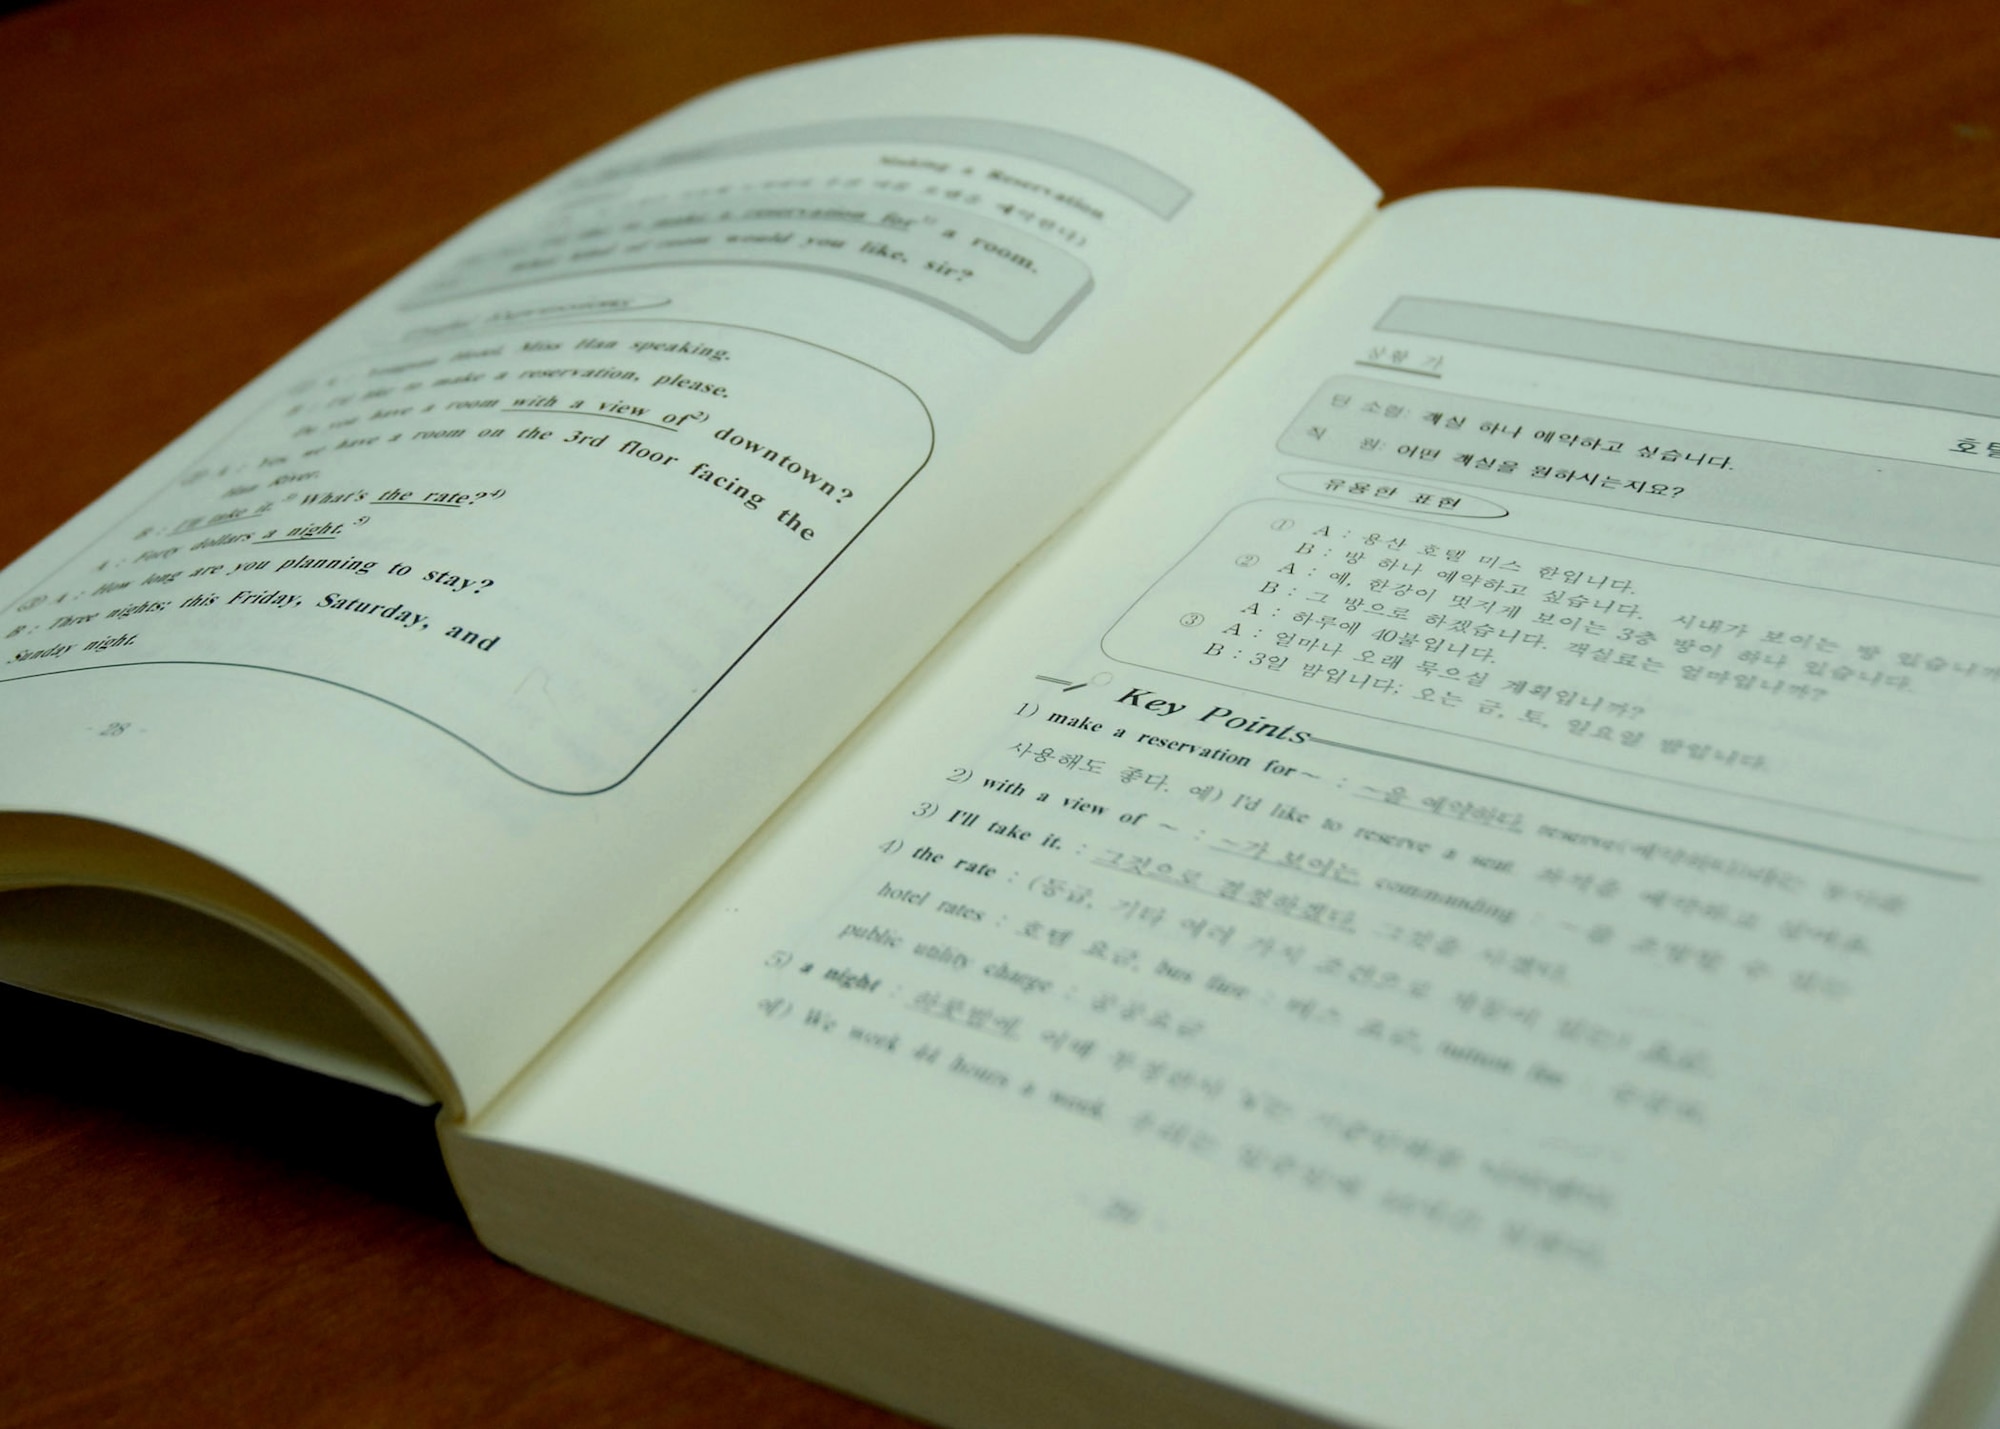 Making a Reservation
make a reservation for¹⁾ a room.
What kind of room would you like, sir?
Useful Expressions
Hotel, Miss Han speaking.
B : I'd like to make a reservation, please.
Do you have a room with a view of²⁾ downtown?
② A : Yes, we have a room on the 3rd floor facing the
Han River.
B : I'll take it.³⁾ What's the rate?⁴⁾
A : Forty dollars a night.⁵⁾
③ A : How long are you planning to stay?
B : Three nights; this Friday, Saturday, and
Sunday night.
- 28 -
상황 가
호텔
턴 소령: 객실 하나 예약하고 싶습니다.
직 원: 어떤 객실을 원하시는지요?
유용한 표현
① A : 용산 호텔 미스 한입니다.
B : 방 하나 예약하고 싶습니다. 시내가 보이는 방 있습니까
② A : 예, 한강이 멋지게 보이는 3층 방이 하나 있습니다.
B : 그 방으로 하겠습니다. 객실료는 얼마입니까?
A : 하루에 40불입니다.
③ A : 얼마나 오래 묵으실 계획입니까?
B : 3일 밤입니다; 오는 금, 토, 일요일 밤입니다.
Key Points
1) make a reservation for~ : ~을 예약하다.
사용해도 좋다. 예) I'd like to reserve a seat. 좌석을 예약하고 싶어요.
2) with a view of ~ : ~가 보이는 commanding : ~을 조망할 수 있는
3) I'll take it. : 그것으로 결정하겠다. 그것을 사겠다.
4) the rate : (등급, 기타 여러 가지 조건으로
hotel rates : 호텔 요금, bus fare : 버스 요금,
public utility charge : 공공요금
5) a night : 하룻밤에,
예) We work 44 hours a week.